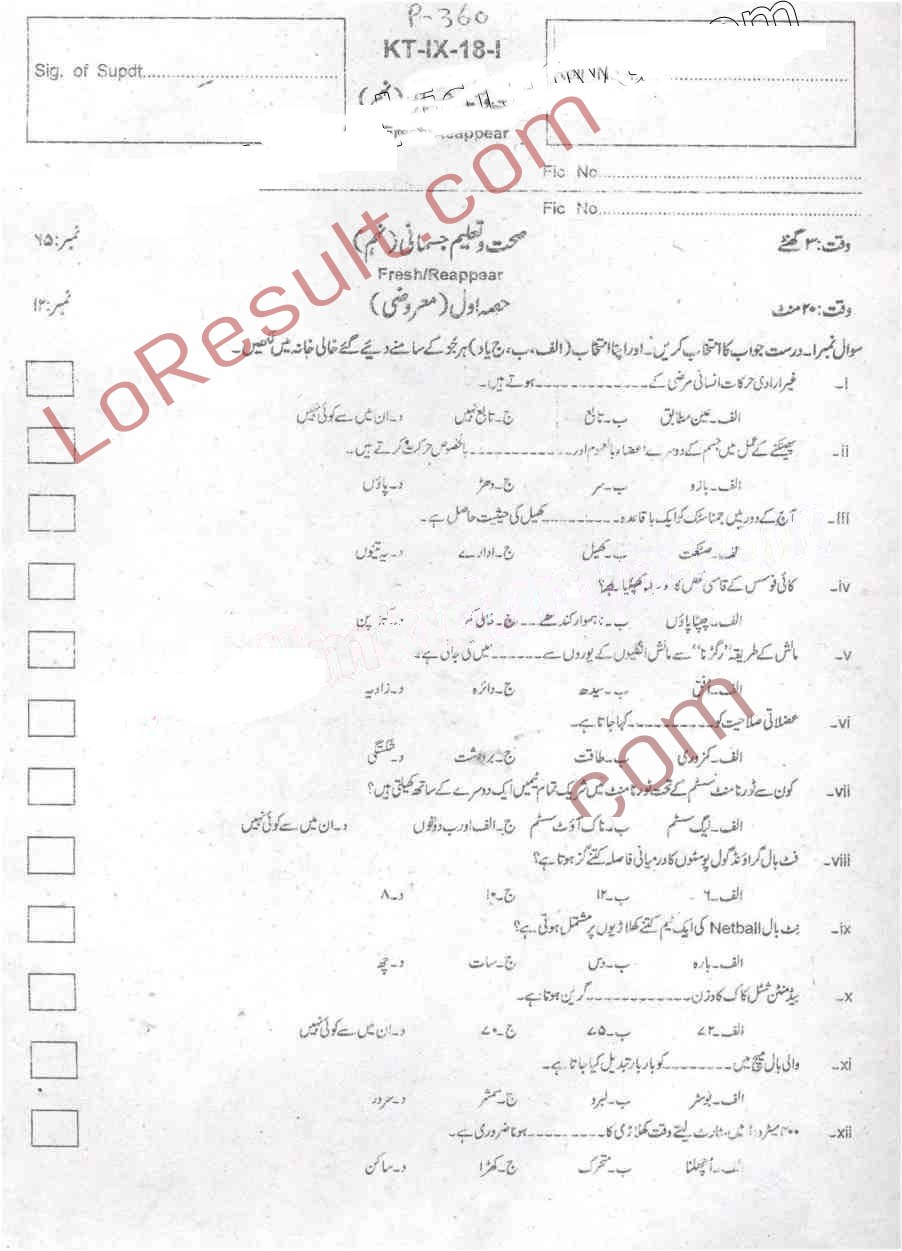 P-360
KT-IX-18-I
Sig. of Supdt.
Reappear
Fic No
Fic No
وقت: ۳ گھنٹے
صحت و تعلیم جسمانی (نہم)
نمبر: ۷۵
Fresh/Reappear
وقت: ۲۰ منٹ
حصہ اول (معروضی)
نمبر: ۱۲
سوال نمبر ا۔ درست جواب کا انتخاب کریں۔ اور اپنا انتخاب (الف، ب، ج یا د) ہر جُز کے سامنے دیئے گئے خالی خانہ میں لکھیں۔
i۔ غیر ارادی حرکات انسانی مرضی کے ------------- ہوتے ہیں۔
الف۔ عین مطابق ب۔ تابع ج۔ تابع نہیں د۔ ان میں سے کوئی نہیں
ii۔ پھینکنے کے عمل میں جسم کے دوسرے اعضاء بالعموم اور ------------ بالخصوص حرکت کرتے ہیں۔
الف۔ بازو ب۔ سر ج۔ دھڑ د۔ پاؤں
iii۔ آج کے دور میں جمناسٹک کو ایک باقاعدہ --------- کھیل کی حیثیت حاصل ہے۔
الف۔ صنعت ب۔ کھیل ج۔ ادارے د۔ یہ تینوں
iv۔ کائی فوسس کے قاسی نقص کا
الف۔ چپٹا پاؤں ب۔ ناہموار کندھے ج۔ خالی
v۔ مالش کے طریقہ "رگڑنا" سے مالش انگلیوں کے پوروں سے ------ میں کی جاتی ہے۔
الف۔ افقی ب۔ سیدھ ج۔ دائرہ د۔ زاویہ
vi۔ عضلاتی صلاحیت کو ---------- کہا جاتا ہے۔
الف۔ کمزوری ب۔ طاقت ج۔ برداشت د۔ شکستگی
vii۔ کون سے ٹورنامنٹ سسٹم کے تحت ٹورنامنٹ میں شریک تمام ٹیمیں ایک دوسرے کے ساتھ کھیلتی ہیں؟
الف۔ لیگ سسٹم ب۔ ناک آؤٹ سسٹم ج۔ الف اور ب دونوں د۔ ان میں سے کوئی نہیں
viii۔ فٹ بال گراؤنڈ گول پوسٹوں کا درمیانی فاصلہ کتنے گز ہوتا ہے؟
الف۔ ۶ ب۔ ۱۲ ج۔ ۱۰ د۔ ۸
ix۔ نٹ بال Netball کی ایک ٹیم کتنے کھلاڑیوں پر مشتمل ہوتی ہے؟
الف۔ بارہ ب۔ دس ج۔ سات د۔ چھ
x۔ بیڈمنٹن شٹل کاک کا وزن ---------- گرین ہوتا ہے۔
الف۔ ۷۲ ب۔ ۷۵ ج۔ ۷۰ د۔ ان میں سے کوئی نہیں
xi۔ والی بال میچ میں -------- کو بار بار تبدیل کیا جاتا ہے۔
الف۔ بوسٹر ب۔ لبرو ج۔ سمشر د۔ سرور
xii۔ ۴۰۰ میٹر میں سٹارٹ لیتے وقت کھلاڑی کا --------- ہونا ضروری ہے۔
الف۔ اُچھلنا ب۔ متحرک ج۔ کھڑا د۔ ساکن
LoResult.com
com